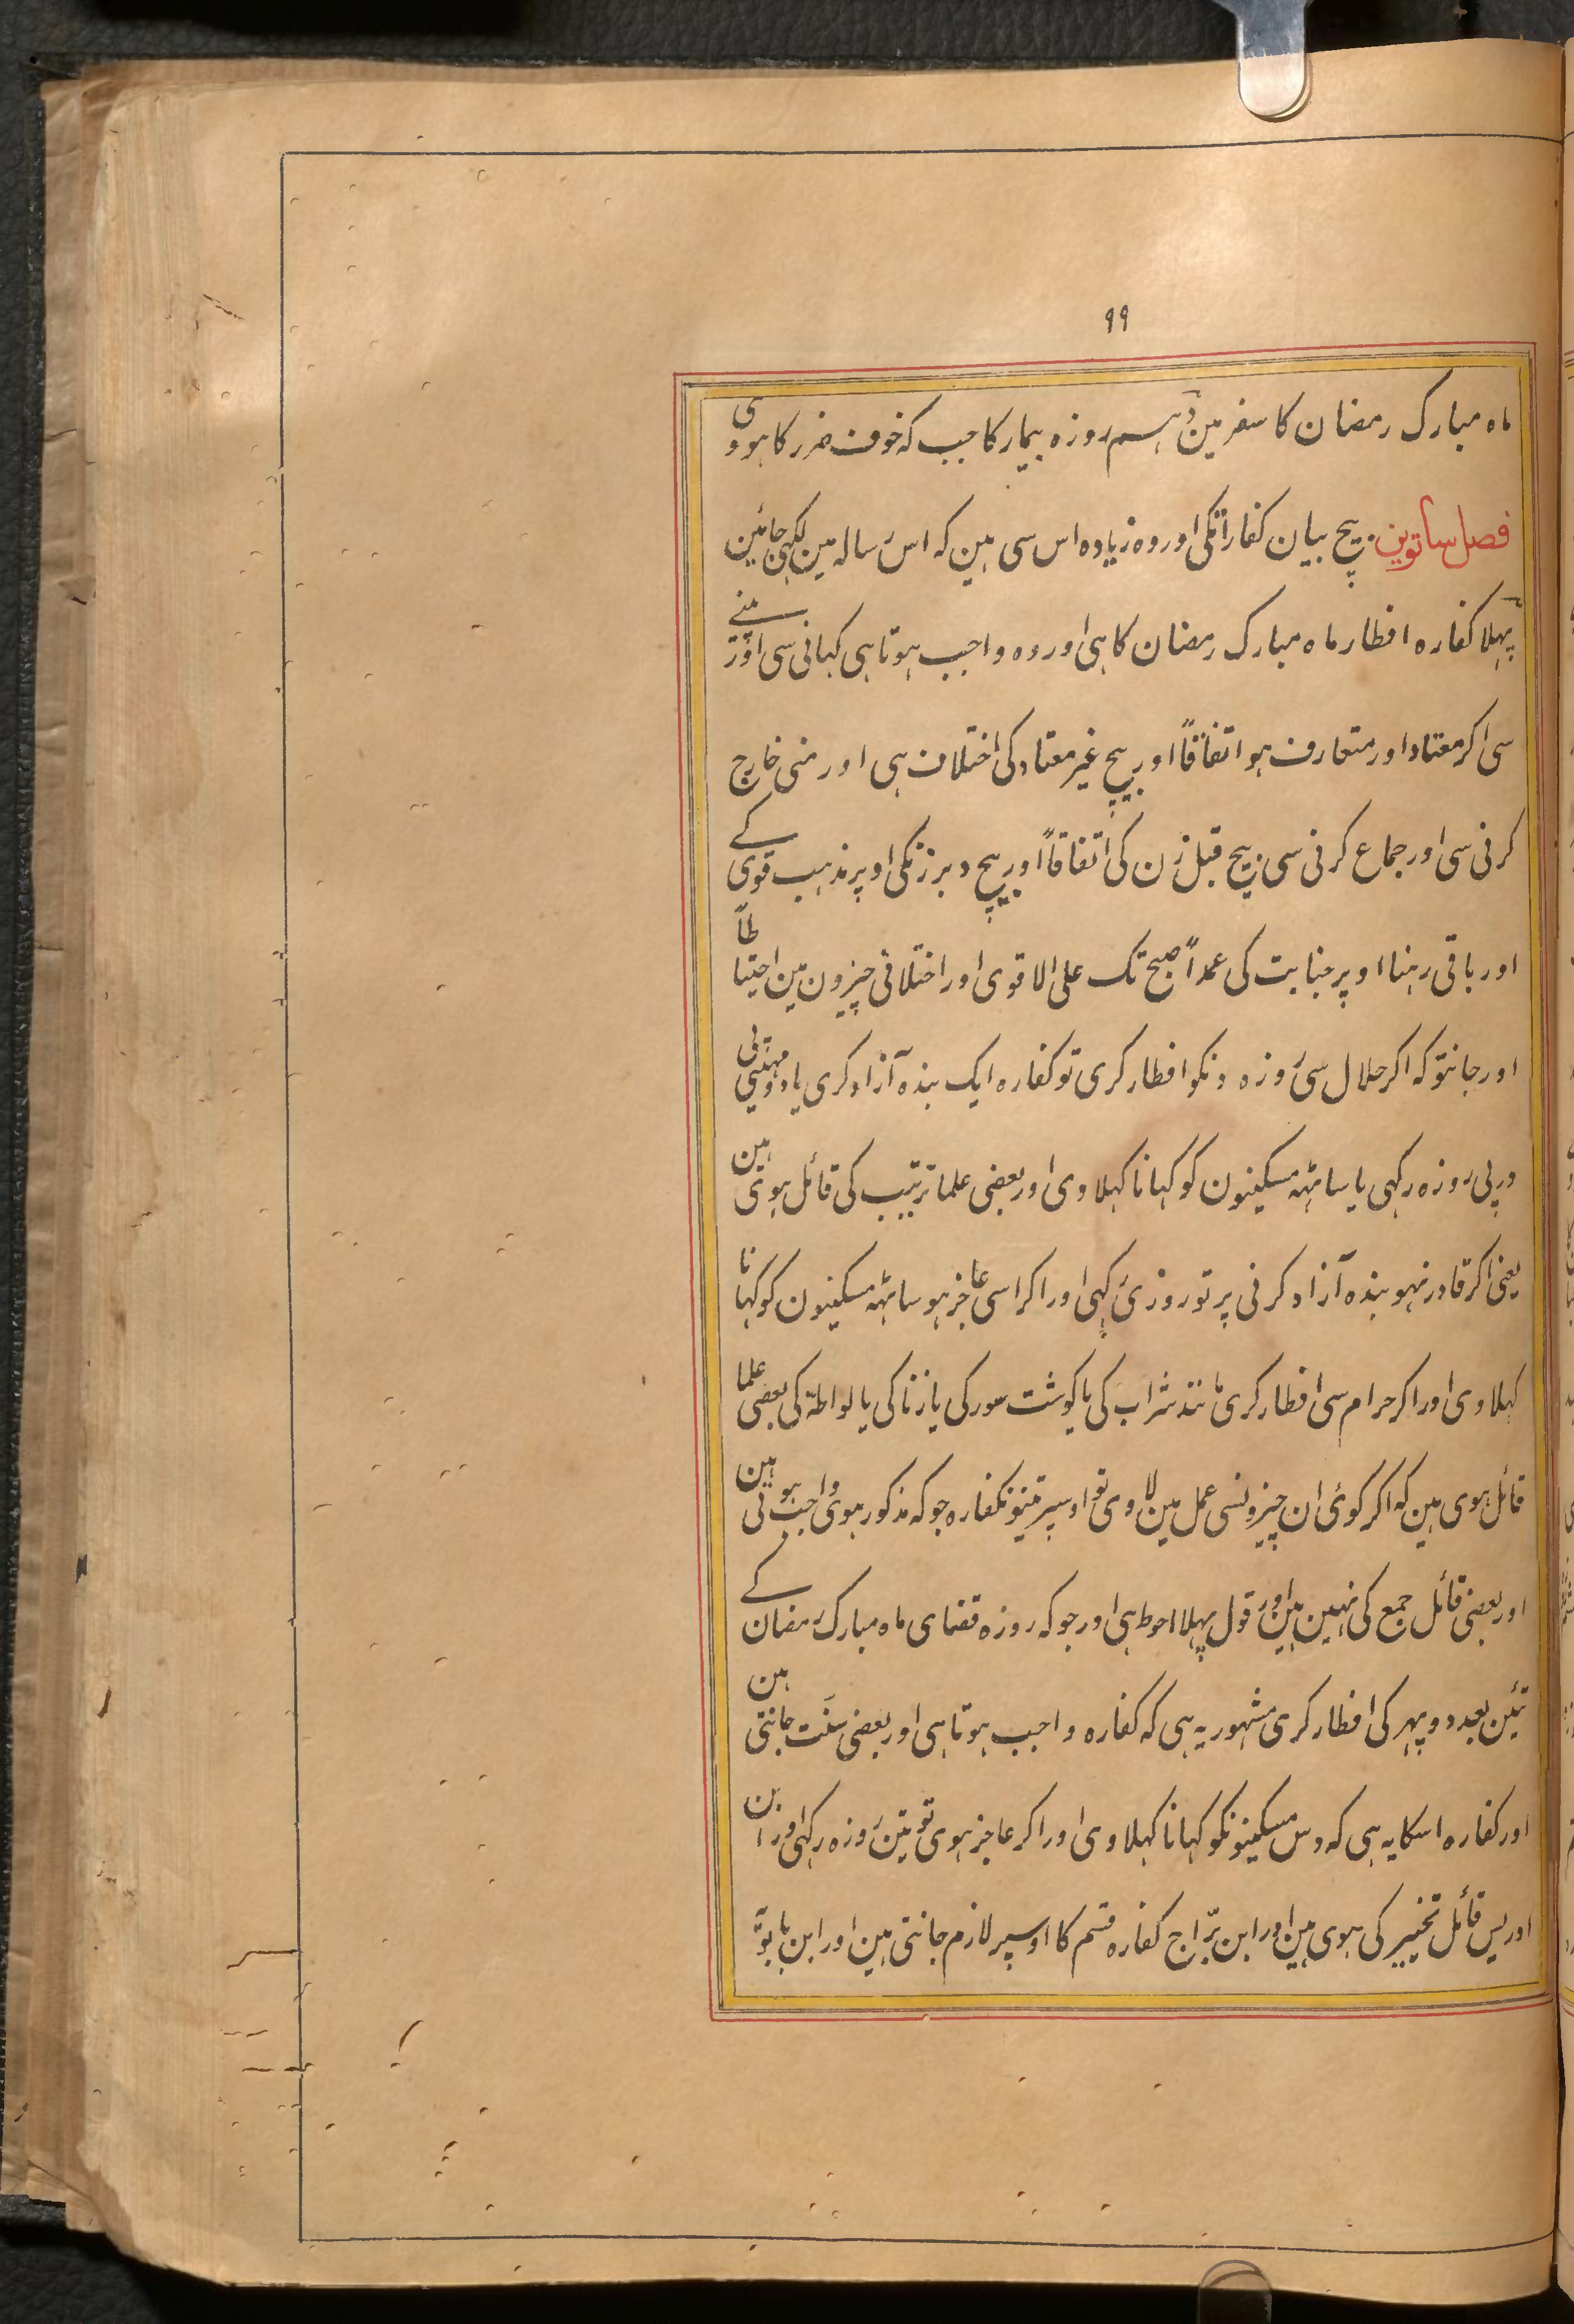 ۹۹
ماہ مبارک رمضان کا سفر مین دہم روزہ بیمار کا جب کہ خوف ضرر کا ہووی
فصل ساتوین بیچ بیان کفاراتکی اور وہ زیادہ اس سی ہین کہ اس رسالہ مین لکہی جائین
پہلا کفارہ افطار ماہ مبارک رمضان کا ہی اور وہ واجب ہوتا ہی کہانی سی اور پینے
سی اکر معتاد اور متعارف ہو اتفاقاً اور بیچ غیر معتاد کی اختلاف ہی اور منی خارج
کرنی سی اور جماع کرنی سی بیچ قبل زن کی اتفاقاً اور بیچ دبر زنکی اوپر مذہب قوی کے
اور باقی رہنا اوپر جنابت کی عمداً صبح تک علی الاقوی اور اختلافی چیزون مین احتیاطاً
اور جانتو کہ اکر حلال سی روزہ دنکو افطار کری تو کفارہ ایک بندہ آزاد کری یا دو مہینی پی
در پی روزہ رکہی یا ساٹہہ مسکینون کو کہانا کہلاوی اور بعضی علما ترتیب کی قائل ہوی ہین
یعنی اکر قادر نہو بندہ آزاد کرنی پر تو روزی رکہی اور اکر اسی عاجز ہو ساٹہہ مسکینون کو کہانا
کہلاوی اور اکر حرام سی افطار کری مانند شراب کی یا کوشت سور کی یا زنا کی یا لواطہ کی بعضی علما
قائل ہوی ہین کہ اکر کوئی ان چیزونسی عمل مین لاوی تو اوسپر تینو نکفارہ جو کہ مذکور ہوی واجب ہوتی ہین
اور بعضی قائل جمع کی نہین ہین اور قول پہلا احوط ہی اور جو کہ روزہ قضای ماہ مبارک رمضان کے
تئین بعد دوپہر کی افطار کری مشہور یہ ہی کہ کفارہ واجب ہوتا ہی اور بعضی سنّت جانتی ہین
اور کفارہ اسکا یہ ہی کہ دس مسکینونکو کہانا کہلاوی اور اکر عاجز ہوی تو تین روزہ رکہی اور ابن
ادریس قائل تخییر کی ہوی ہین اور ابن برّاج کفارہ قسم کا اوسپر لازم جانتی ہین اور ابن بابوّ